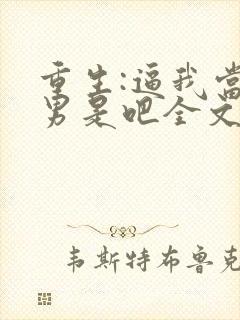 重生:逼我当
男是吧全文
韦斯特布鲁克